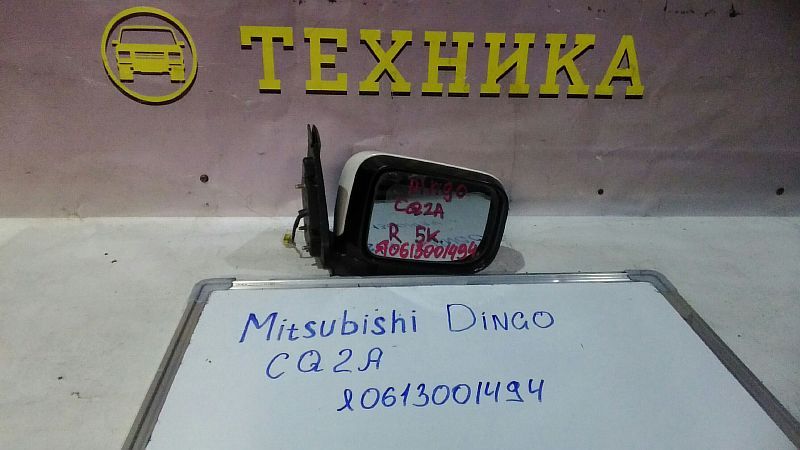 ТЕХНИКА
Dingo
CQ2A
R 5к.
я0613001494
Mitsubishi DINGO
CQ2A
я0613001494